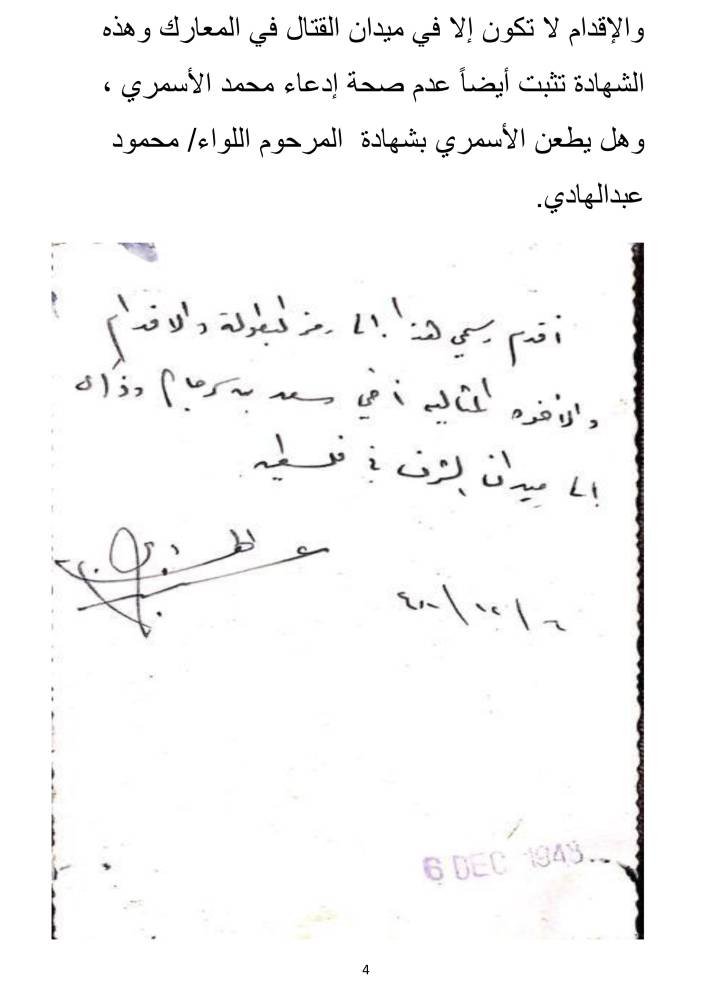 والإقدام لا تكون إلا في ميدان القتال في المعارك وهذه
الشهادة تثبت أيضاً عدم صحة إدعاء محمد الأسمري ،
وهل يطعن الأسمري بشهادة المرحوم اللواء/ محمود
عبدالهادي.
أقدم رسمي هذا إلى رمز البطولة والاقدام
والأخوه المثاليه أخي سعد بن
إلى ميدان الشرف في فلسطين
6 DEC 1948
4